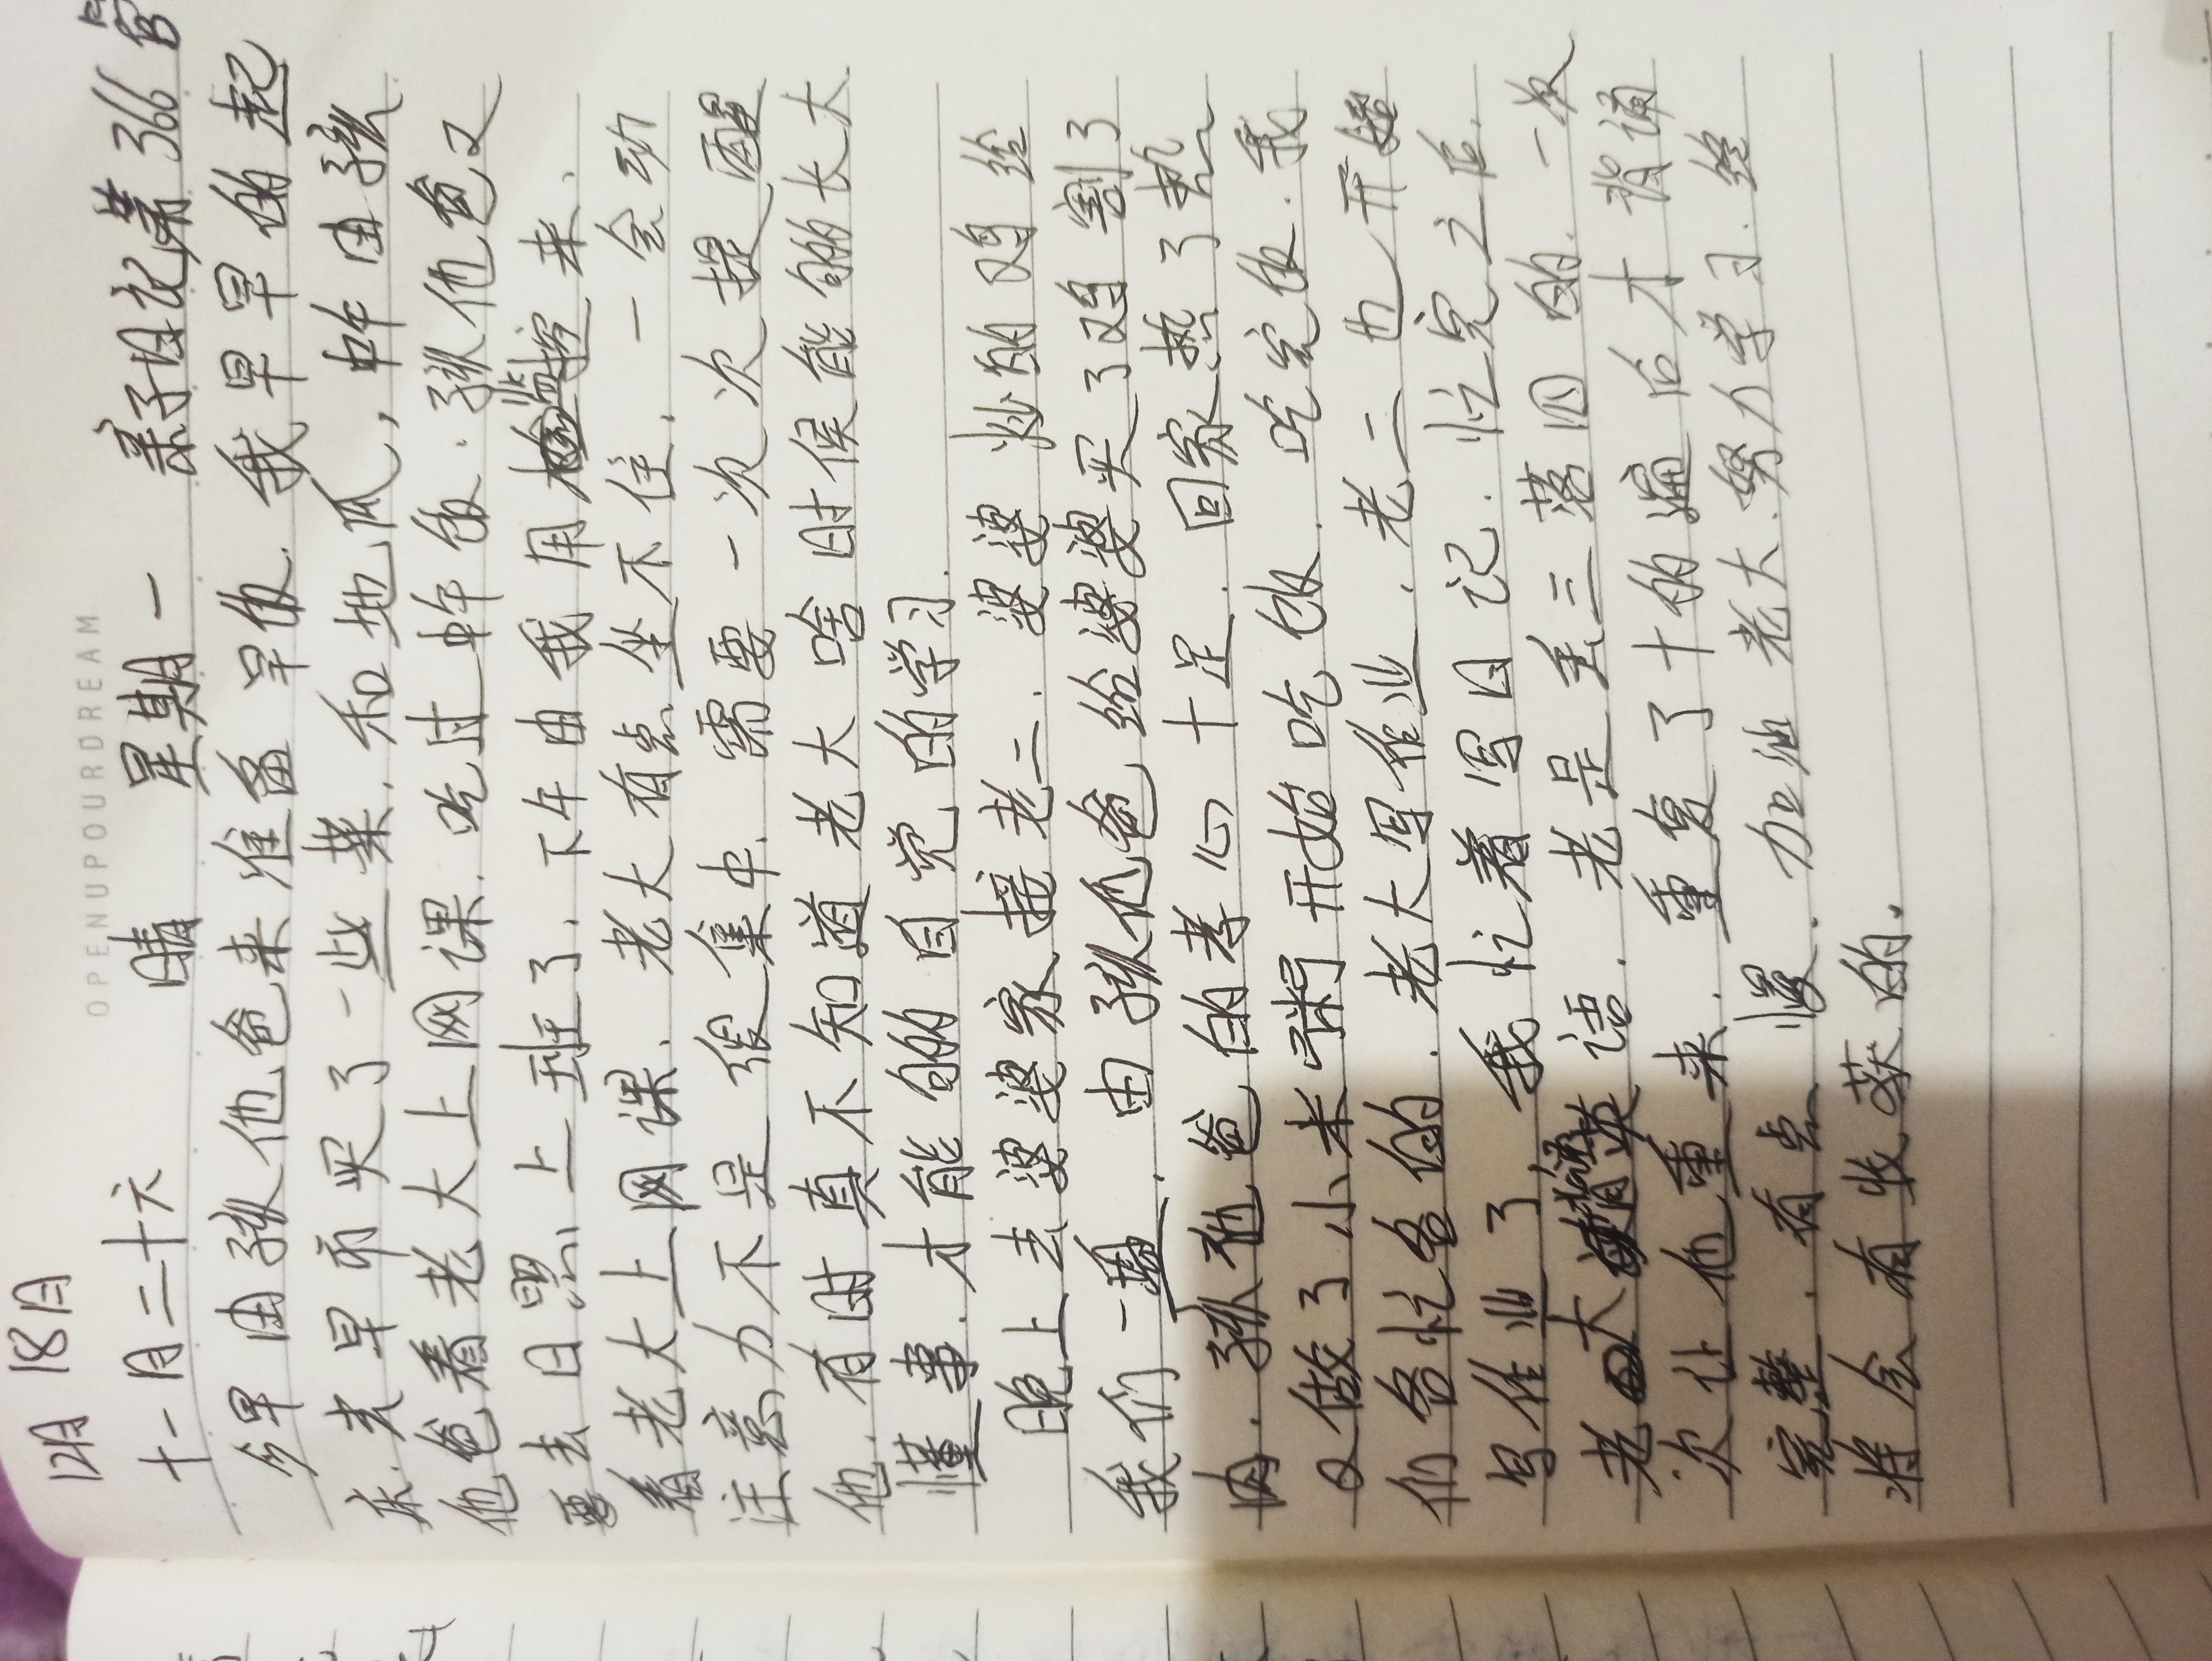 OPENUPOURDREAM
12月 18日
十一月二十六 晴 星期一 亲子日记第366篇
今早由孩他爸来准备早饭.我早早的起
床.去早市买了一些菜.和地瓜,中午由孩
他爸看着老大上网课.吃过中午饭.孩他爸又
要去日照上班了.下午由我用监控来.
看老大上网课.老大有点坐不住.一会动
注意力不是很集中.需要一次次提醒
他.有时真不知道老大啥时候能够长大
懂事.才能够自觉的学习.
晚上去婆婆家接老二.婆婆炒的鸡给
我们一盘.由孩他爸给婆婆买了鸡割了
肉.孩他爸的孝心十足.回家热了热
又做了小米粥开始吃饭.吃完饭.我
们各忙各的.老大写作业.老二也开始
写作业了.我忙着写日记.忙完之后.
老大背英语.老是丢三落四的.一次
次让他重来.重复了十的遍后才背诵
完整.有点慢.加油老大.努力学习.终
将会有收获的.